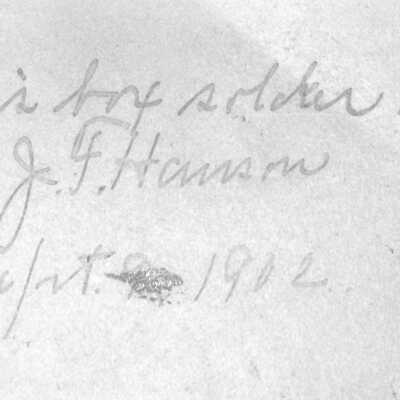 is box solder
J. F. Hanson
ept. 9 1902